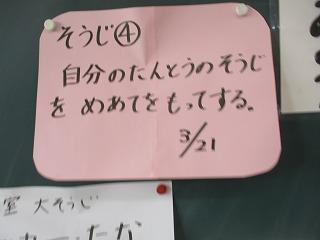 そうじ④
自分のたんとうのそうじ
を めあてをもってする。
3/21
室 大そうじ